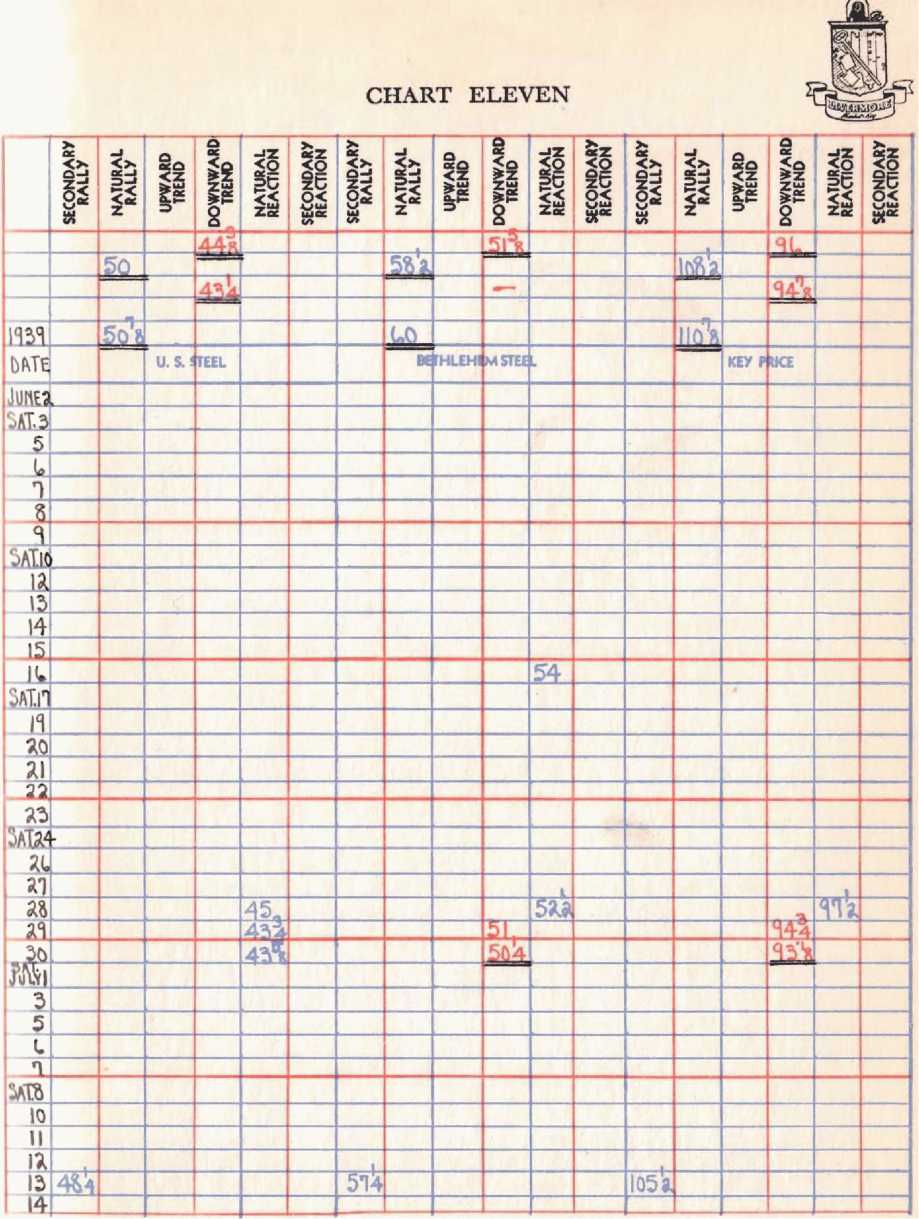 LIVERMORE
Market Key
CHART ELEVEN
SECONDARY RALLY NATURAL RALLY UPWARD TREND DOWNWARD TREND NATURAL REACTION SECONDARY REACTION SECONDARY RALLY NATURAL RALLY UPWARD TREND DOWNWARD TREND NATURAL REACTION SECONDARY REACTION SECONDARY RALLY NATURAL RALLY UPWARD TREND DOWNWARD TREND NATURAL REACTION SECONDARY REACTION
44 5/8 51 5/8 96
50 58 1/2 108 1/2
43 1/4 — 94 7/8
1939 50 7/8 60 110 7/8
DATE U. S. STEEL BETHLEHEM STEEL KEY PRICE
JUNE 2
SAT. 3
5
6
7
8
9
SAT.10
12
13
14
15
16 54
SAT.17
19
20
21
22
23
SAT.24
26
27
28 45 52 1/2 97 1/2
29 43 3/4 51 94 3/4
30 43 5/8 50 1/4 93 7/8
SAT. JULY 1
3
5
6
7
SAT.8
10
11
12
13 48 1/4 57 1/4 105 1/2
14